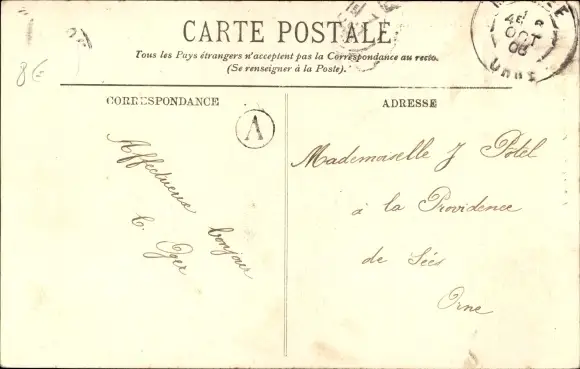 CARTE POSTALE
Tous les Pays étrangers n'acceptent pas la Correspondance au recto.
(Se renseigner à la Poste).
8€
CORRESPONDANCE
A
Affectueux bonjour
ADRESSE
Mademoiselle J Postel
à la Providence
de Sées
Orne
OCT
06
ORNE